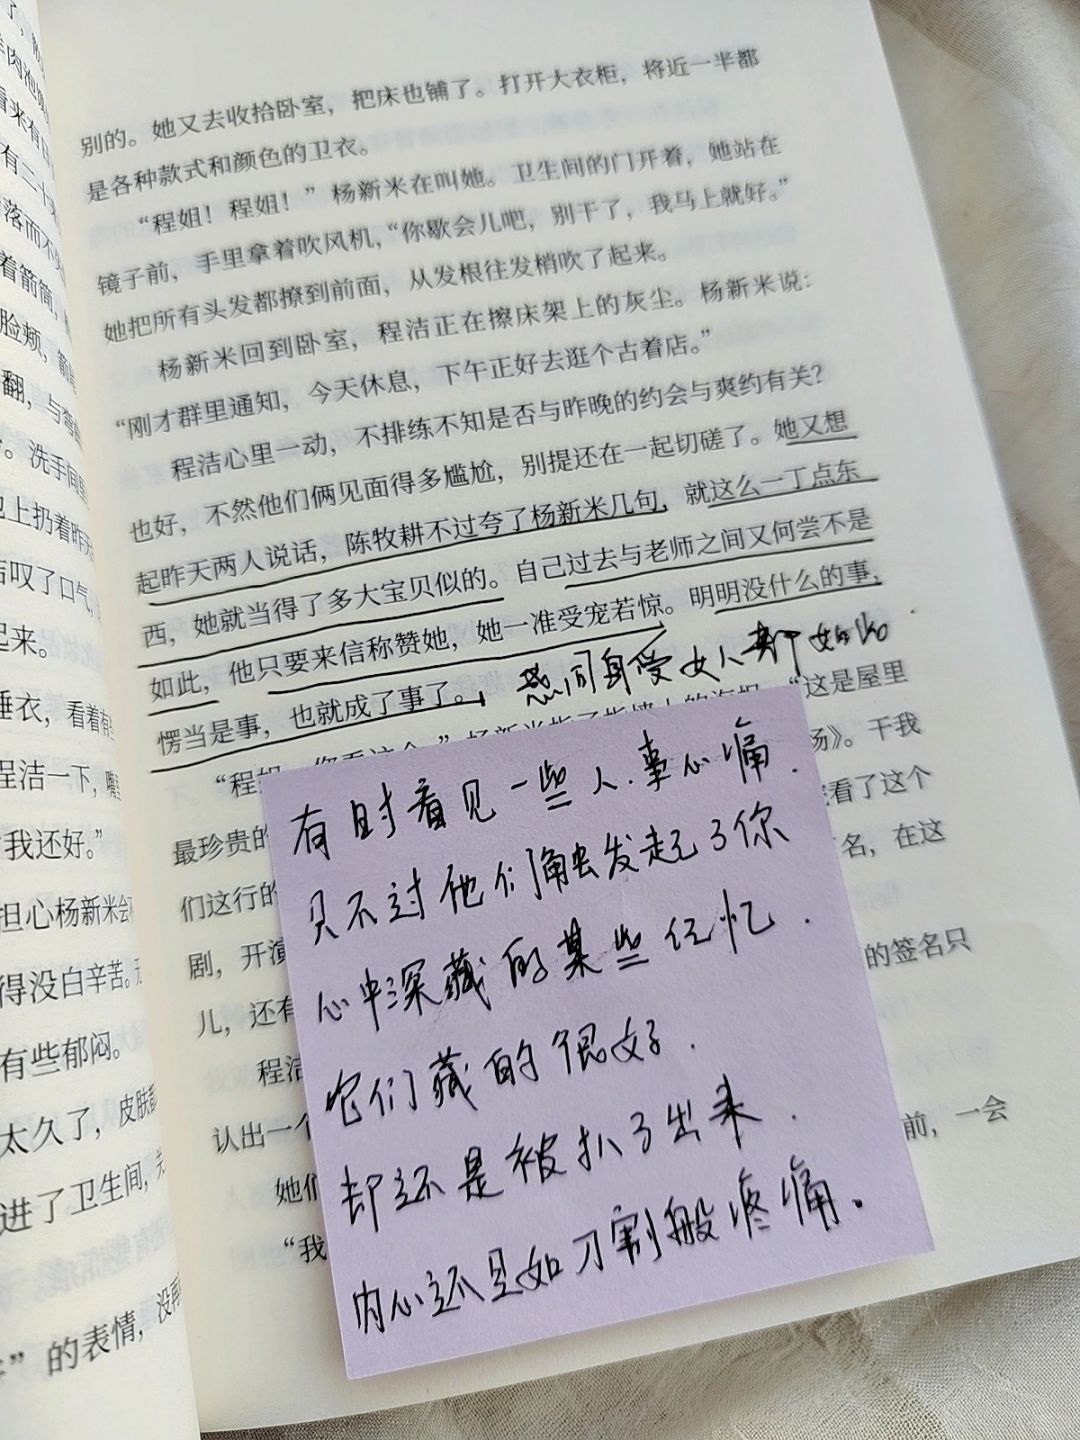 了，
羊肉泡馍
看来有
有二十
落而不
着箭筒，
脸颊，箭
翻，与弯
。洗手间里
地上扔着昨天
洁叹了口气，
起来。
睡衣，看着有
程洁一下，嘴
“我还好。”
担心杨新米会
得没白辛苦。
有些郁闷。
太久了，皮肤
进了卫生间，
”的表情，没再
别的。她又去收拾卧室，把床也铺了。打开大衣柜，将近一半都
是各种款式和颜色的卫衣。
“程姐！程姐！”杨新米在叫她。卫生间的门开着，她站在
镜子前，手里拿着吹风机，“你歇会儿吧，别干了，我马上就好。”
她把所有头发都撩到前面，从发根往发梢吹了起来。
杨新米回到卧室，程洁正在擦床架上的灰尘。杨新米说：
“刚才群里通知，今天休息，下午正好去逛个古着店。”
程洁心里一动，不排练不知是否与昨晚的约会与爽约有关？
也好，不然他们俩见面得多尴尬，别提还在一起切磋了。她又想
起昨天两人说话，陈牧耕不过夸了杨新米几句，就这么一丁点东
西，她就当得了多大宝贝似的。自己过去与老师之间又何尝不是
如此，他只要来信称赞她，她一准受宠若惊。明明没什么的事，
愣当是事，也就成了事了。
感同身受女人都如此
“程姐，你看这个。”杨新米指了指墙上的海报，“这是屋里
最珍贵的 场》。干我
们这行的 看了这个
剧，开演 名，在这
儿，还有 的签名只
程洁
认出一个 前，一会
她们
“我
有时看见一些人.事心痛.
只不过他们触发起了你
心中深藏的某些记忆.
它们藏的很好.
却还是被扒了出来.
内心还是如刀割般疼痛。